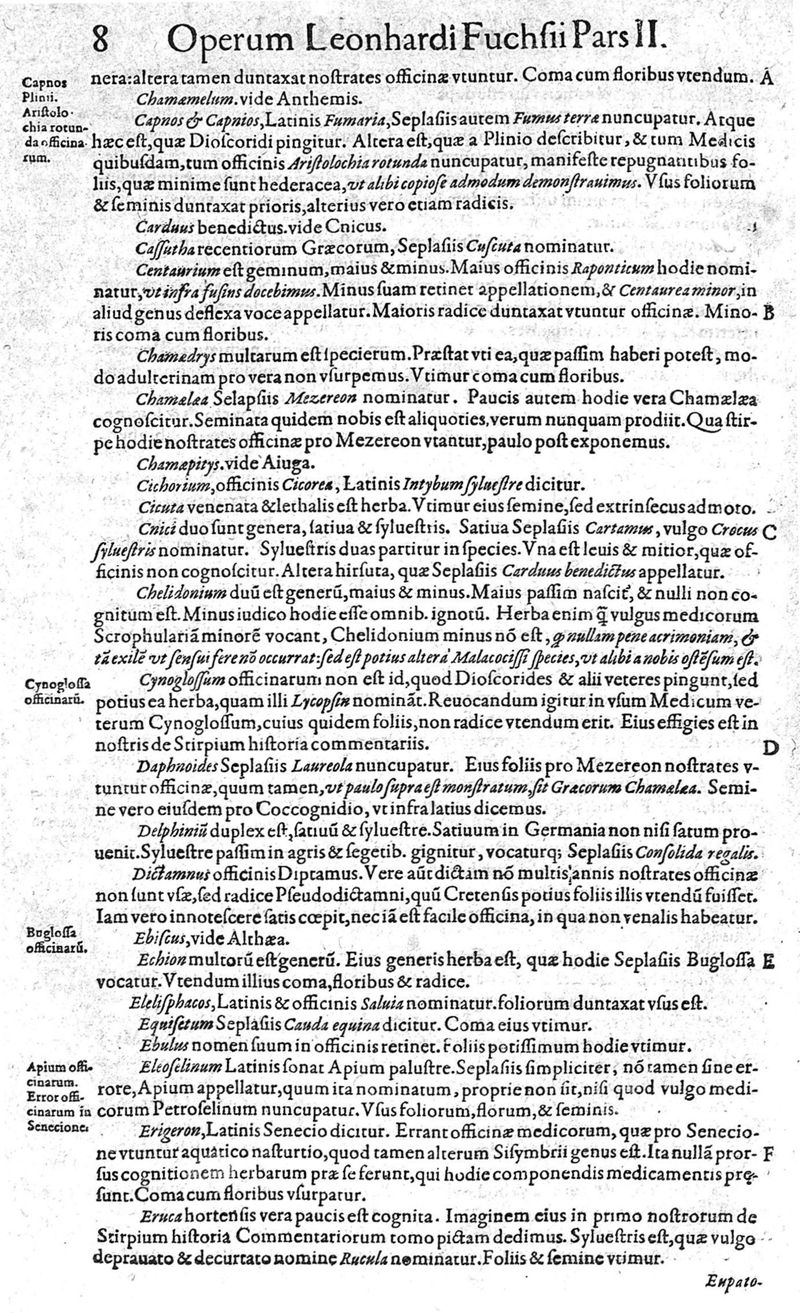 8 Operum Leonhardi Fuchſii Pars II.
Capnos
Plinii.
Ariſtolo-
chia rotun-
da officina
rum.
nera: altera tamen duntaxat noſtrates officinæ vtuntur. Coma cum floribus vtendum. A
Chamæmelum. vide Anthemis.
Capnos & Capnios, Latinis Fumaria, Seplaſiis autem Fumus terræ nuncupatur. Atque
hæc eſt, quæ Dioſcoridi pingitur. Altera eſt, quæ a Plinio deſcribitur, & tum Medicis
quibuſdam, tum officinis Ariſtolochia rotunda nuncupatur, manifeſte repugnantibus fo-
liis, quæ minime ſunt hederacea, vt alibi copioſe admodum demonſtrauimus. Vſus foliorum
& ſeminis duntaxat prioris, alterius vero etiam radicis.
Carduus benedictus. vide Cnicus.
Caſſutha recentiorum Græcorum, Seplaſiis Cuſcuta nominatur.
Centaurium eſt geminum, maius & minus. Maius officinis Raponticum hodie nomi-
natur, vt infra fuſius docebimus. Minus ſuam retinet appellationem, & Centaurea minor, in
aliud genus deflexa voce appellatur. Maioris radice duntaxat vtuntur officinæ. Mino- B
ris coma cum floribus.
Chamædrys multarum eſt ſpecierum. Præſtat vti ea, quæ paſſim haberi poteſt, mo-
do adulterinam pro vera non vſurpemus. Vtimur coma cum floribus.
Chamælæa Selapſiis Mezereon nominatur. Paucis autem hodie vera Chamælæa
cognoſcitur. Seminata quidem nobis eſt aliquoties, verum nunquam prodiit. Qua ſtir-
pe hodie noſtrates officinæ pro Mezereon vtantur, paulo poſt exponemus.
Chamæpitys. vide Aiuga.
Cichorium, officinis Cicorea, Latinis Intybum ſylueſtre dicitur.
Cicuta venenata & lethalis eſt herba. Vtimur eius ſemine, ſed extrinſecus admoto.
Cnici duo ſunt genera, ſatiua & ſylueſtris. Satiua Seplaſiis Cartamus, vulgo Crocus C
ſylueſtris nominatur. Sylueſtris duas partitur in ſpecies. Vna eſt leuis & mitior, quæ of-
ficinis non cognoſcitur. Altera hirſuta, quæ Seplaſiis Carduus benedictus appellatur.
Chelidonium duũ eſt generũ, maius & minus. Maius paſſim naſcit᷑, & nulli non co-
gnitum eſt. Minus iudico hodie eſſe omnib. ignotũ. Herba enim q̃ vulgus medicorum
Scrophulariã minorẽ vocant, Chelidonium minus nõ eſt, ꝙ nullam pene acrimoniam, &
tã exilẽ vt ſenſui fere nõ occurrat: ſed eſt potius altera Malacociſſi ſpecies, vt alibi a nobis oſtẽſum eſt.
Cynogloſſa
officinarũ.
Cynogloſſum officinarum non eſt id, quod Dioſcorides & alii veteres pingunt, ſed
potius ea herba, quam illi Lycopſin nominãt. Reuocandum igitur in vſum Medicum ve-
terum Cynogloſſum, cuius quidem foliis, non radice vtendum erit. Eius effigies eſt in
noſtris de Stirpium hiſtoria commentariis. D
Daphnoides Seplaſiis Laureola nuncupatur. Eius foliis pro Mezereon noſtrates v-
tuntur officinæ, quum tamen, vt paulo ſupra eſt monſtratum, ſit Græcorum Chamælæa. Semi-
ne vero eiuſdem pro Coccognidio, vt infra latius dicemus.
Delphiniũ duplex eſt, ſatiuũ & ſylueſtre. Satiuum in Germania non niſi ſatum pro-
uenit. Sylueſtre paſſim in agris & ſegetib. gignitur, vocaturq; Seplaſiis Conſolida regalis.
Dictamnus officinis Diptamus. Vere aũt dictam nõ multis annis noſtrates officinæ
non ſunt vſæ, ſed radice Pſeudodictamni, quũ Cretenſis potius foliis illis vtendũ fuiſſet.
Iam vero innoteſcere ſatis cœpit, nec iã eſt facile officina, in qua non venalis habeatur.
Bugloſſa
officinarũ.
Ebiſcus, vide Althæa.
Echion multorũ eſt generũ. Eius generis herba eſt, quæ hodie Seplaſiis Bugloſſa E
vocatur. Vtendum illius coma, floribus & radice.
Eleliſphacos, Latinis & officinis Saluia nominatur. foliorum duntaxat vſus eſt.
Equiſetum Seplaſiis Cauda equina dicitur. Coma eius vtimur.
Ebulus nomen ſuum in officinis retinet. Foliis potiſſimum hodie vtimur.
Apium offi-
cinarum.
Error offi-
cinarum in
Senecione.
Eleoſelinum Latinis ſonat Apium paluſtre. Seplaſiis ſimpliciter, nõ tamen ſine er-
rore, Apium appellatur, quum ita nominatum, proprie non ſit, niſi quod vulgo medi-
corum Petroſelinum nuncupatur. Vſus foliorum, florum, & ſeminis.
Erigeron, Latinis Senecio dicitur. Errant officinæ medicorum, quæ pro Senecio-
ne vtuntur aquatico naſturtio, quod tamen alterum Siſymbrii genus eſt. Ita nullã pror- F
ſus cognitionem herbarum præ ſe ferunt, qui hodie componendis medicamentis pręs-
ſunt. Coma cum floribus vſurpatur.
Eruca hortenſis vera paucis eſt cognita. Imaginem eius in primo noſtrorum de
Stirpium hiſtoria Commentariorum tomo pictam dedimus. Sylueſtris eſt, quæ vulgo
deprauato & decurtato nomine Rucula nominatur. Foliis & ſemine vtimur.
Eupato-